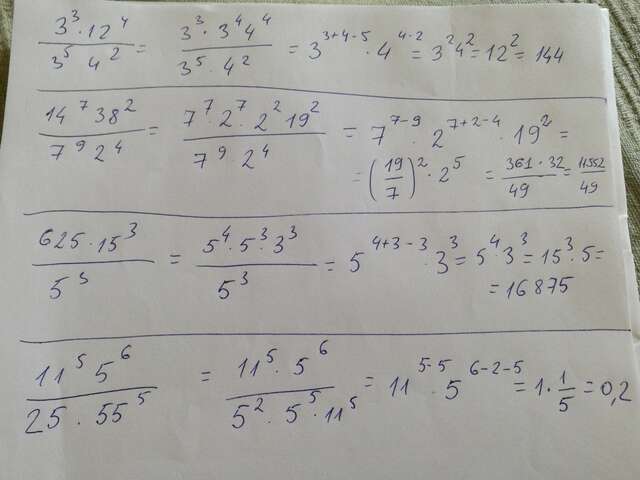 3³·12⁴ / 3⁵ 4² = 3³·3⁴4⁴ / 3⁵·4² = 3³⁺⁴⁻⁵·4⁴⁻² = 3²4² = 12² = 144
14⁷38² / 7⁹2⁴ = 7⁷·2⁷·2²19² / 7⁹·2⁴ = 7⁷⁻⁹·2⁷⁺²⁻⁴·19² =
= (19/7)²·2⁵ = 361·32 / 49 = 11552 / 49
625·15³ / 5³ = 5⁴·5³·3³ / 5³ = 5⁴⁺³⁻³·3³ = 5⁴·3³ = 15³·5 =
= 16875
11⁵5⁶ / 25·55⁵ = 11⁵·5⁶ / 5²·5⁵·11⁵ = 11⁵⁻⁵·5⁶⁻²⁻⁵ = 1·1/5 = 0,2